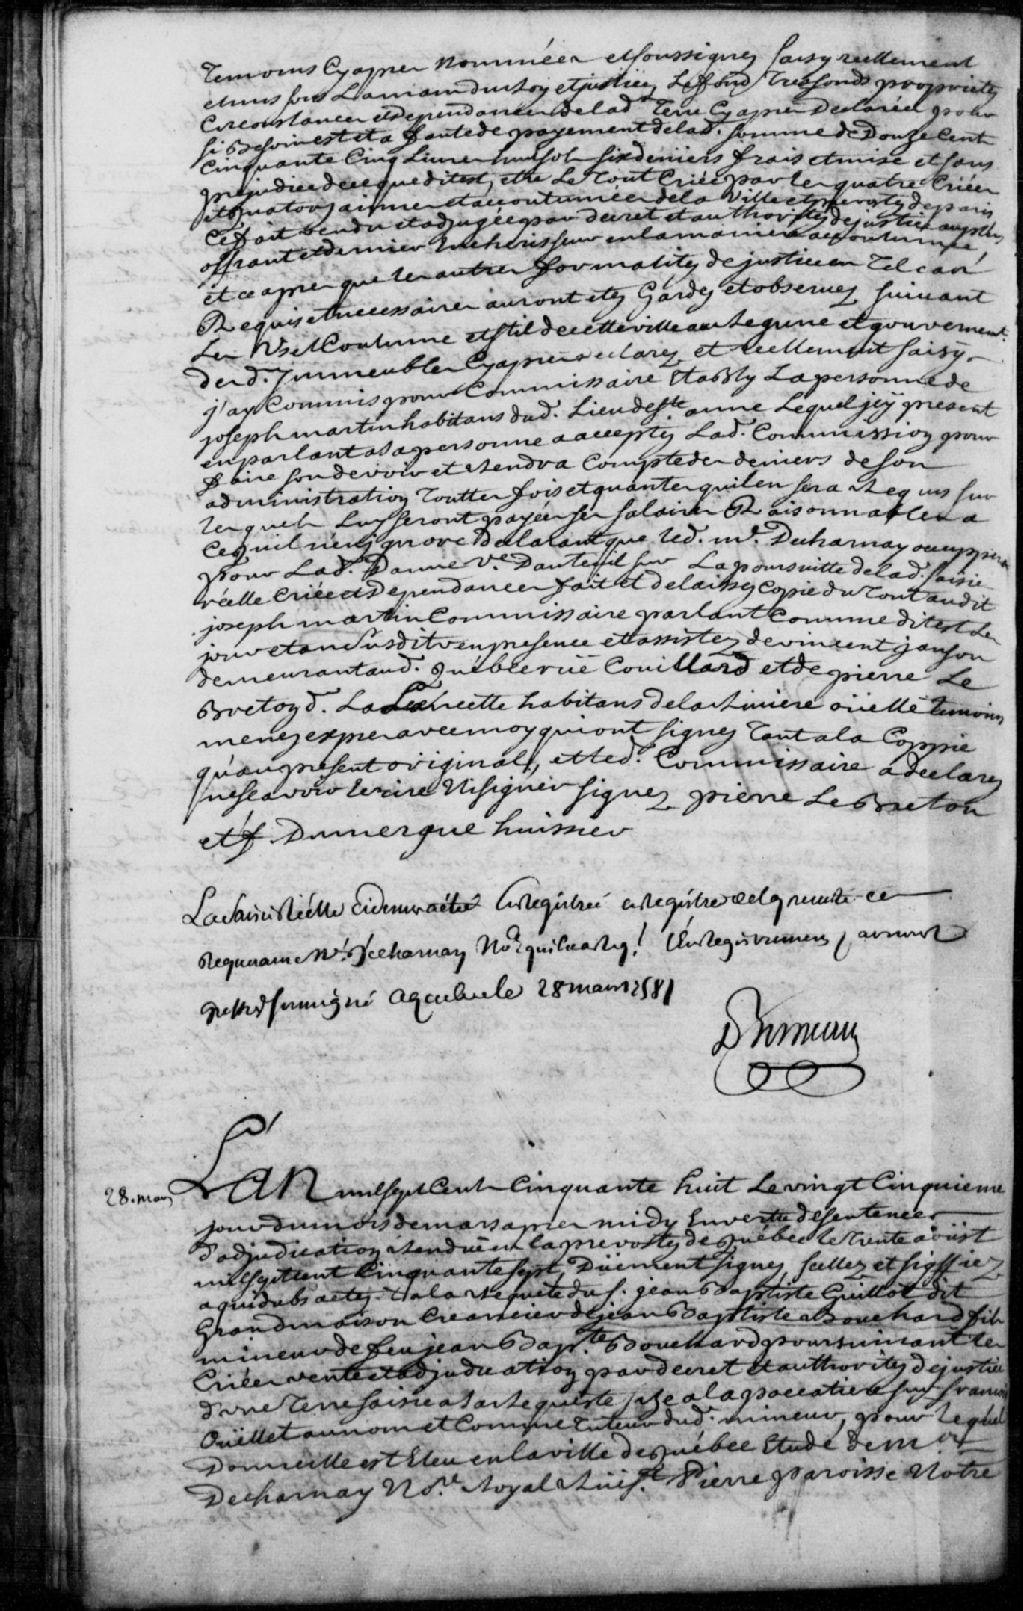 Temoins Cyapres nommées et soussignez saisy reellement
et mis sous La main du Roy et justice, Le fond Tres fonds propriété
Circonstances et dependances de lad. Terre Cyapres Declarée pour
si Besoin est et a faute de payement de lad. somme de Douze Cent
Cinquante Cinq Livres huit sols six deniers frais et mise et sans
prejudice de ce que dit est, etre Le Tout Criée par les quatre Criées
et quatorzaines et accoutumées de la Ville et prevosté de paris
Ce fait vendu et adjugée par decret et authorité de justice au plus
offrant et dernier Encherisseur en la maniere accoutumée
et ce apres que les autres formalitez de justice en Tel cas
Requis et necessaires auront etez Gardez et observez suivant
Les Us et Coutume et stil de cette ville au Regime et gouvernemt.
desd. Immeubles Cyapres declarez et reellement saisy
j'ay Commis pour Commissaire Etably La personne de
joseph martin habitans dud. Lieu de Ste. anne Lequel jcy present
en parlant a sa personne a accepté Lad. Commission pour
faire son devoir et Rendra Compte des deniers de son
administration Toutte fois et quantes quil en sera Requis sur
lesquels Luy seront payées ses salaires Raisonnables a
Ce quil n'en jgnore declarant que led. me. Decharnay occuppera
pour Lad. Dame Ve. Dauteuil sur La poursuitte de lad. saisie
réelle Criées et dependances fait et delaissé Copie du Tout audit
joseph martin Commissaire parlant Comme dit est Les
jour et an susdit en presence et assistez de vincent janson
demeurant aud. quebec rüe Couillard et de pierre Le
Breton d. La habitans de la Riviere oüelle temoins
menez exprer avec moy qui ont signez Tant a la Coppie
qu'au present original, et led. Commissaire a declarez
ne sçavoir Ecrire Ni signer signez pierre Le Breton
et f. Dumergue huissier
La saisie Réelle Cidessus a été Enregistrée au registre de la presente ce
requerant Me. Decharnay Nore. Enregistrement par nous
soussigné a quebec le 28 mars 1758
28. mars
L'an mil sept Cent Cinquante huit Le vingt Cinquieme
jour du mois de mars apres midy En vertu de sentence
d'adjudication Rendüe en la prevosté de québec le Trente aoüst
mil sept cent Cinquante sept, Düement signez, scellez et signiffiez
a qui dubs actes. et a la Requete du s. jean Baptiste Guillot dit
Grandmaison Creancier de jean Baptiste Bouchard fils
mineur de feu jean Bapte. Bouchard poursuivant les
Criées vente et adjudication par decret et authorité de justice
d'une Terre saisie a sa Requeste size a la pocatiere sur françois
Oüellet au nom et Comme Tuteur dud. mineur, pour lequel
Domicille est Eleu en la ville de québec Etude de me.
Decharnay Nore. Royal Rüe st. Pierre paroisse Notre